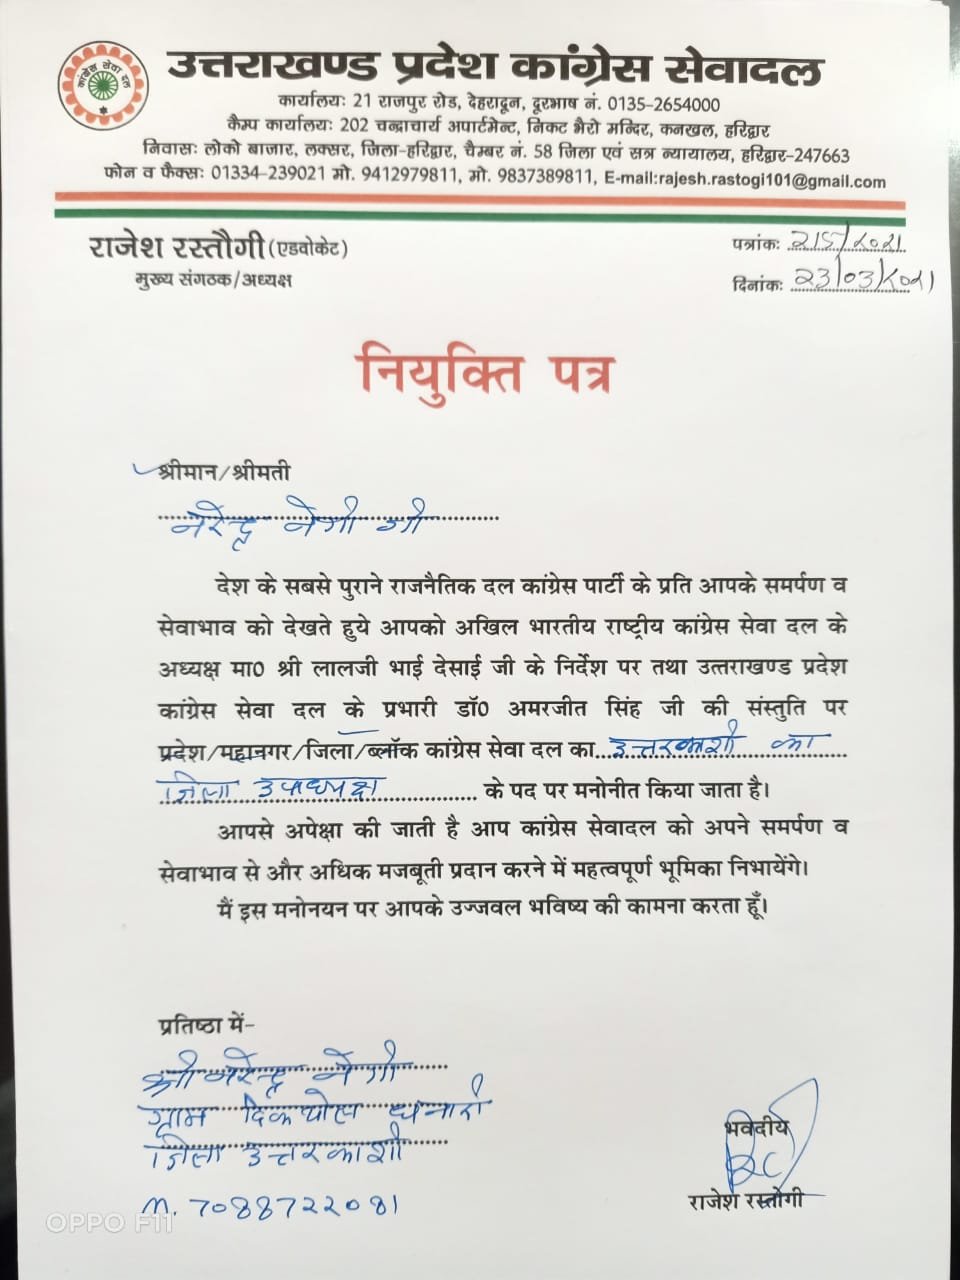 कांग्रेस सेवा दल
उत्तराखण्ड प्रदेश कांग्रेस सेवादल
कार्यालयः 21 राजपुर रोड, देहरादून, दूरभाष नं. 0135-2654000
कैम्प कार्यालयः 202 चन्द्राचार्य अपार्टमेन्ट, निकट भैरो मन्दिर, कनखल, हरिद्वार
निवासः लोको बाजार, लक्सर, जिला-हरिद्वार, चैम्बर नं. 58 जिला एवं सत्र न्यायालय, हरिद्वार-247663
फोन व फैक्सः 01334-239021 मो. 9412979811, मो. 9837389811, E-mail:rajesh.rastogi101@gmail.com
राजेश रस्तौगी (एडवोकेट)
मुख्य संगठक/अध्यक्ष
पत्रांकः 215/2021
दिनांकः 23/03/2021
नियुक्ति पत्र
श्रीमान/श्रीमती
नरेन्द्र नेगी जी
देश के सबसे पुराने राजनैतिक दल कांग्रेस पार्टी के प्रति आपके समर्पण व
सेवाभाव को देखते हुये आपको अखिल भारतीय राष्ट्रीय कांग्रेस सेवा दल के
अध्यक्ष मा0 श्री लालजी भाई देसाई जी के निर्देश पर तथा उत्तराखण्ड प्रदेश
कांग्रेस सेवा दल के प्रभारी डॉ0 अमरजीत सिंह जी की संस्तुति पर
प्रदेश/महानगर/जिला/ब्लॉक कांग्रेस सेवा दल का उत्तरकाशी का
जिला उपाध्यक्ष के पद पर मनोनीत किया जाता है।
आपसे अपेक्षा की जाती है आप कांग्रेस सेवादल को अपने समर्पण व
सेवाभाव से और अधिक मजबूती प्रदान करने में महत्वपूर्ण भूमिका निभायेंगे।
मैं इस मनोनयन पर आपके उज्जवल भविष्य की कामना करता हूँ।
प्रतिष्ठा में-
श्री नरेन्द्र नेगी
ग्राम धनारी
जिला उत्तरकाशी
M. 7088722081
भवदीय
राजेश रस्तोगी
OPPO F11